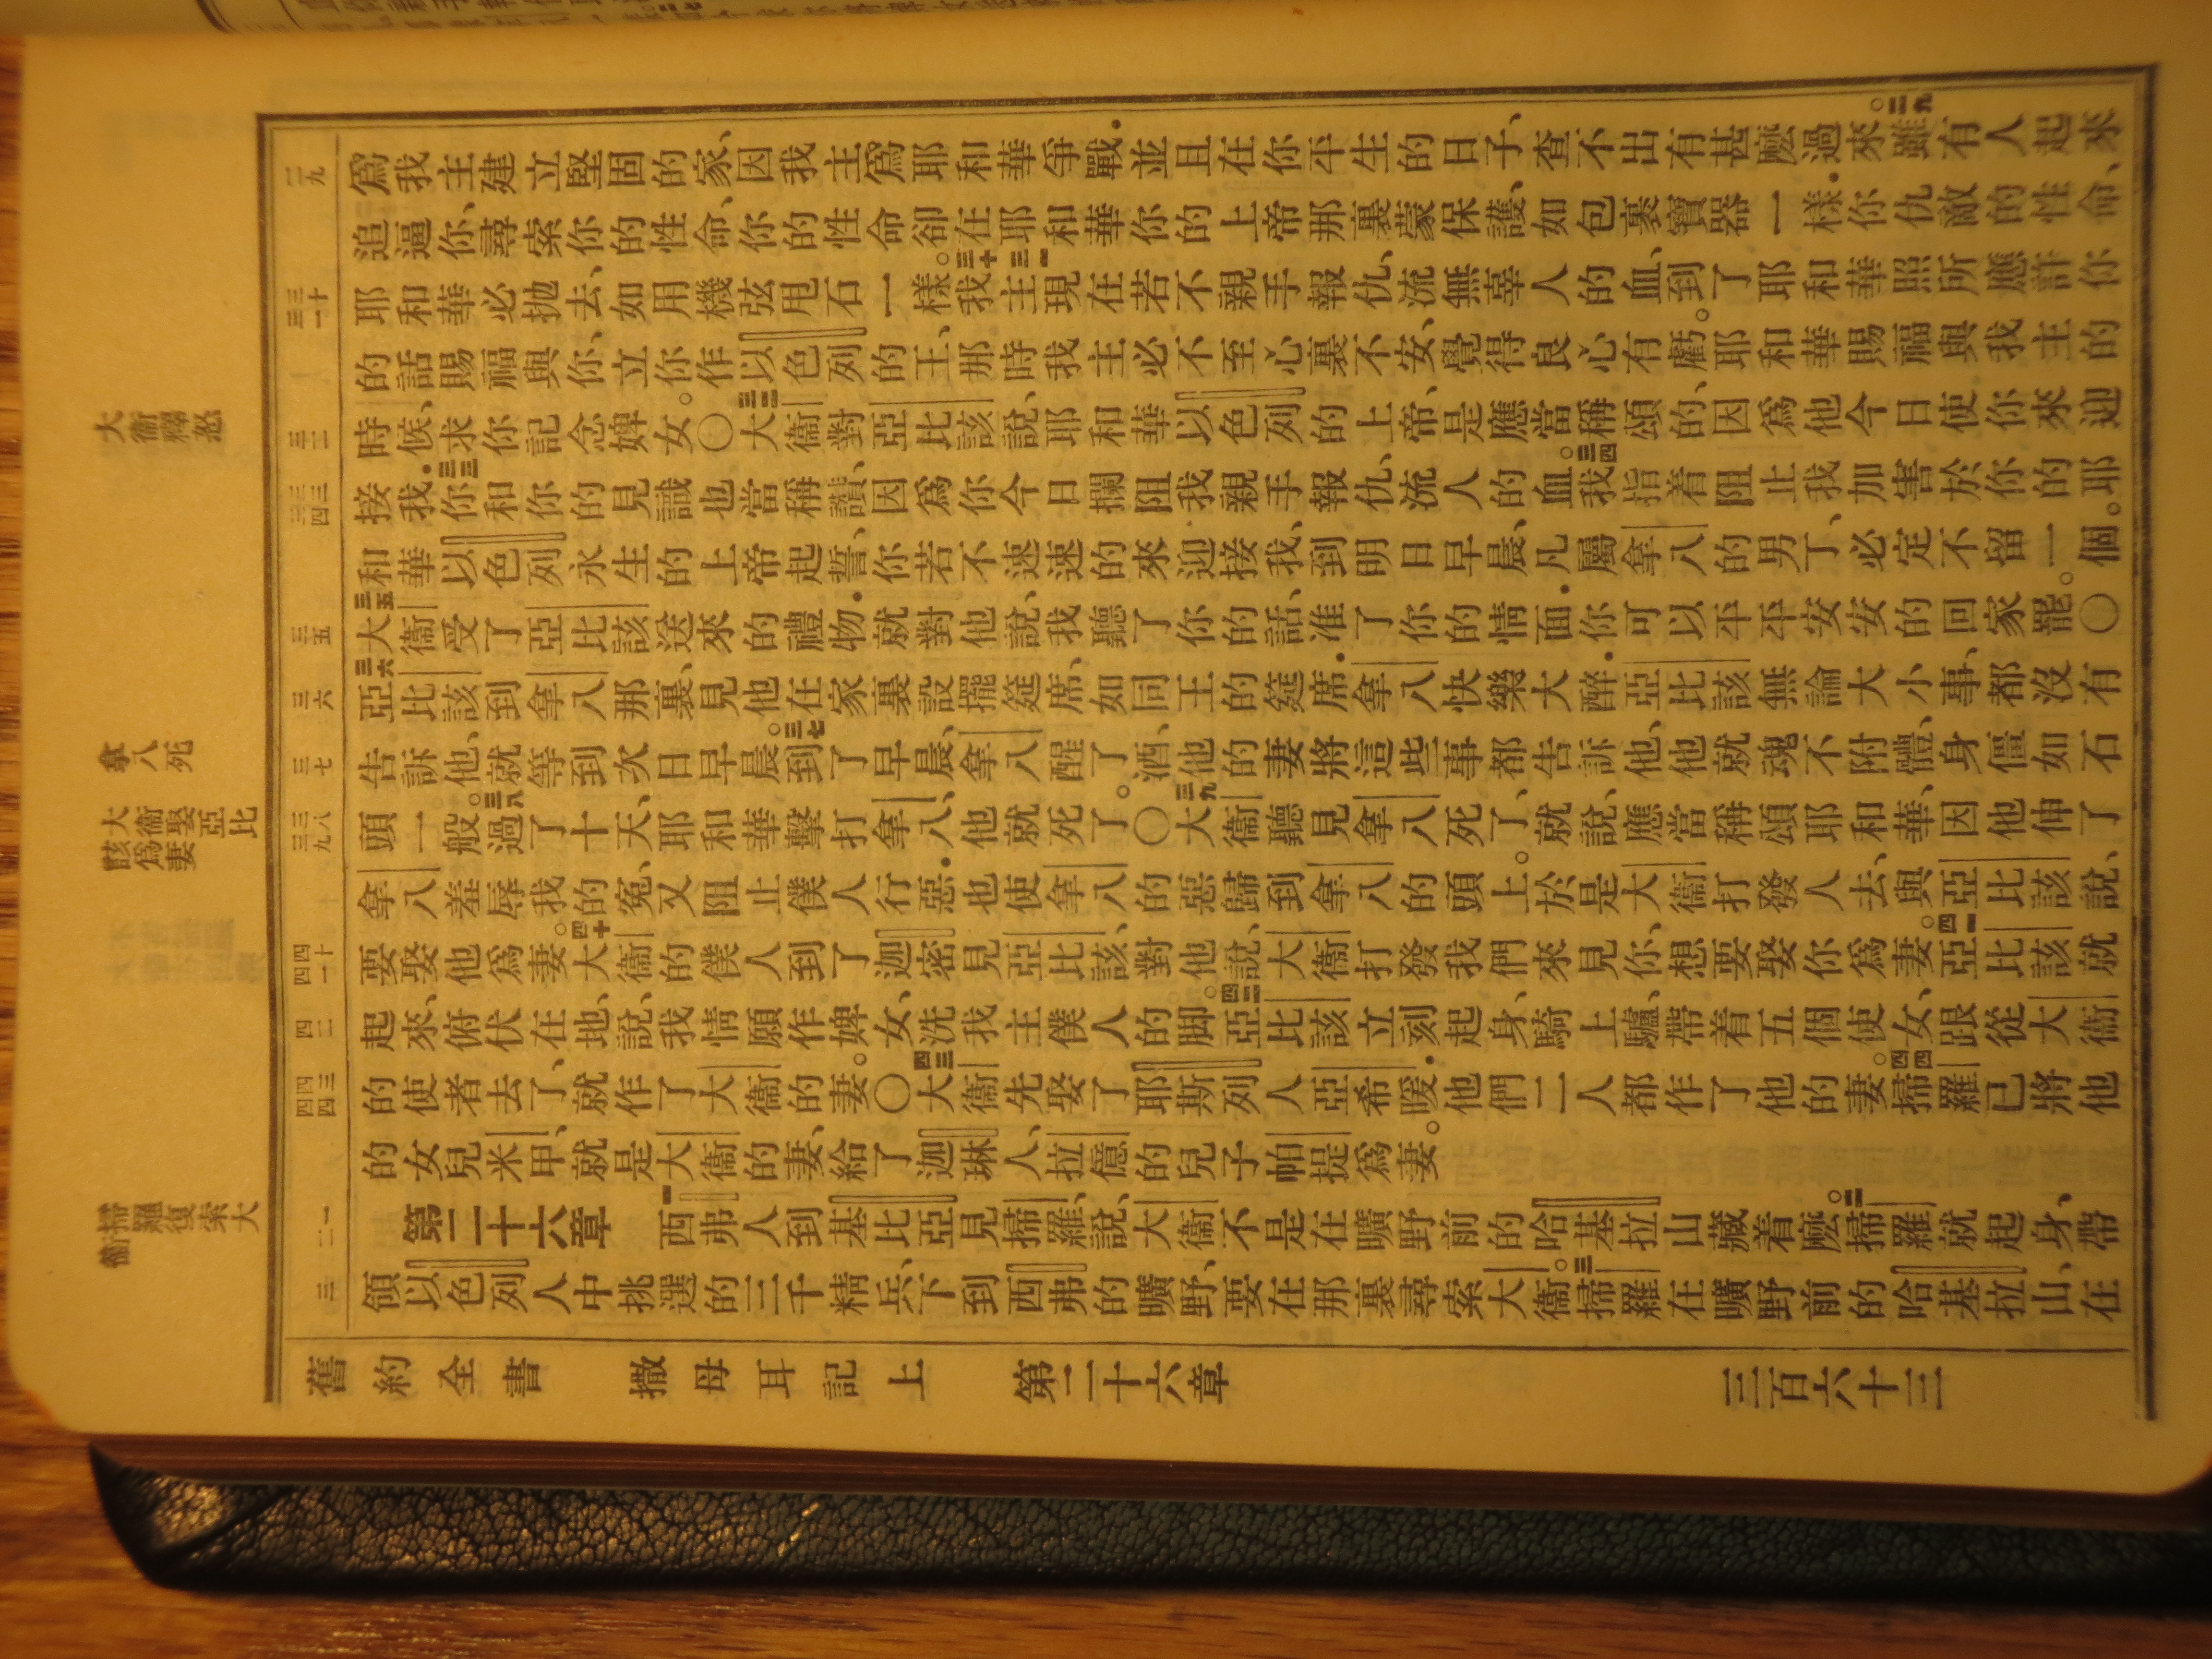 爲我主建立堅固的家、因我主爲耶和華爭戰．並且在你平生的日子、查不出有甚麽過來。二九雖有人起來
追逼你、尋索你的性命、你的性命卻在耶和華你的上帝那裏蒙保護、如包裹寶器一樣．你仇敵的性命、
耶和華必拋去、如用機弦甩石一樣。三十我三一主現在若不親手報仇、流無辜人的血、到了耶和華照所應許你
的話賜福與你、立你作以色列的王、那時我主必不至心裏不安、覺得良心有虧。耶和華賜福與我主的
時候、求你記念婢女。〇三二大衞對亞比該說、耶和華以色列的上帝、是應當稱頌的、因爲他今日使你來迎
接我．三三你和你的見識也當稱讚、因爲你今日攔阻我親手報仇、流人的血。三四我指着阻止我加害於你的耶
和華以色列永生的上帝起誓、你若不速速的來迎接我、到明日早晨、凡屬拿八的男丁、必定不留一個。
三五大衞受了亞比該送來的禮物．就對他說、我聽了你的話、准了你的情面．你可以平平安安的回家罷。〇
三六亞比該到拿八那裏、見他在家裏設擺筵席、如同王的筵席．拿八快樂大醉．亞比該無論大小事、都沒有
告訴他、就等到次日早晨。三七到了早晨、拿八醒了酒、他的妻將這些事都告訴他、他就魂不附體、身僵如石
頭一般。三八過了十天、耶和華擊打拿八、他就死了。〇三九大衞聽見拿八死了、就說、應當稱頌耶和華、因他伸了
拿八羞辱我的冤、又阻止僕人行惡．也使拿八的惡歸到拿八的頭上。於是大衞打發人去、與亞比該說、
要娶他爲妻。四十大衞的僕人到了迦密見亞比該、對他說、大衞打發我們來見你、想要娶你爲妻。四一亞比該就
起來、俯伏在地、說、我情願作婢女、洗我主僕人的脚。四二亞比該立刻起身、騎上驢、帶着五個使女、跟從大衞
的使者去了、就作了大衞的妻。〇四三大衞先娶了耶斯列人亞希暖．他們二人都作了他的妻。四四掃羅已將他
的女兒米甲、就是大衞的妻、給了迦琳人、拉億的兒子帕提爲妻。
第二十六章 一西弗人到基比亞見掃羅、說、大衞不是在曠野前的哈基拉山藏着麽。二掃羅就起身、帶
領以色列人中挑選的三千精兵、下到西弗的曠野、要在那裏尋索大衞。三掃羅在曠野前的哈基拉山、在
二九
三十
三一
三二
三三
三四
三五
三六
三七
三八
三九
四十
四一
四二
四三
四四
一
二
三
大衞釋怒
拿八死
大衞娶亞比
該爲妻
掃羅復索大
衞
舊約全書 撒母耳記上 第二十六章 三百六十三